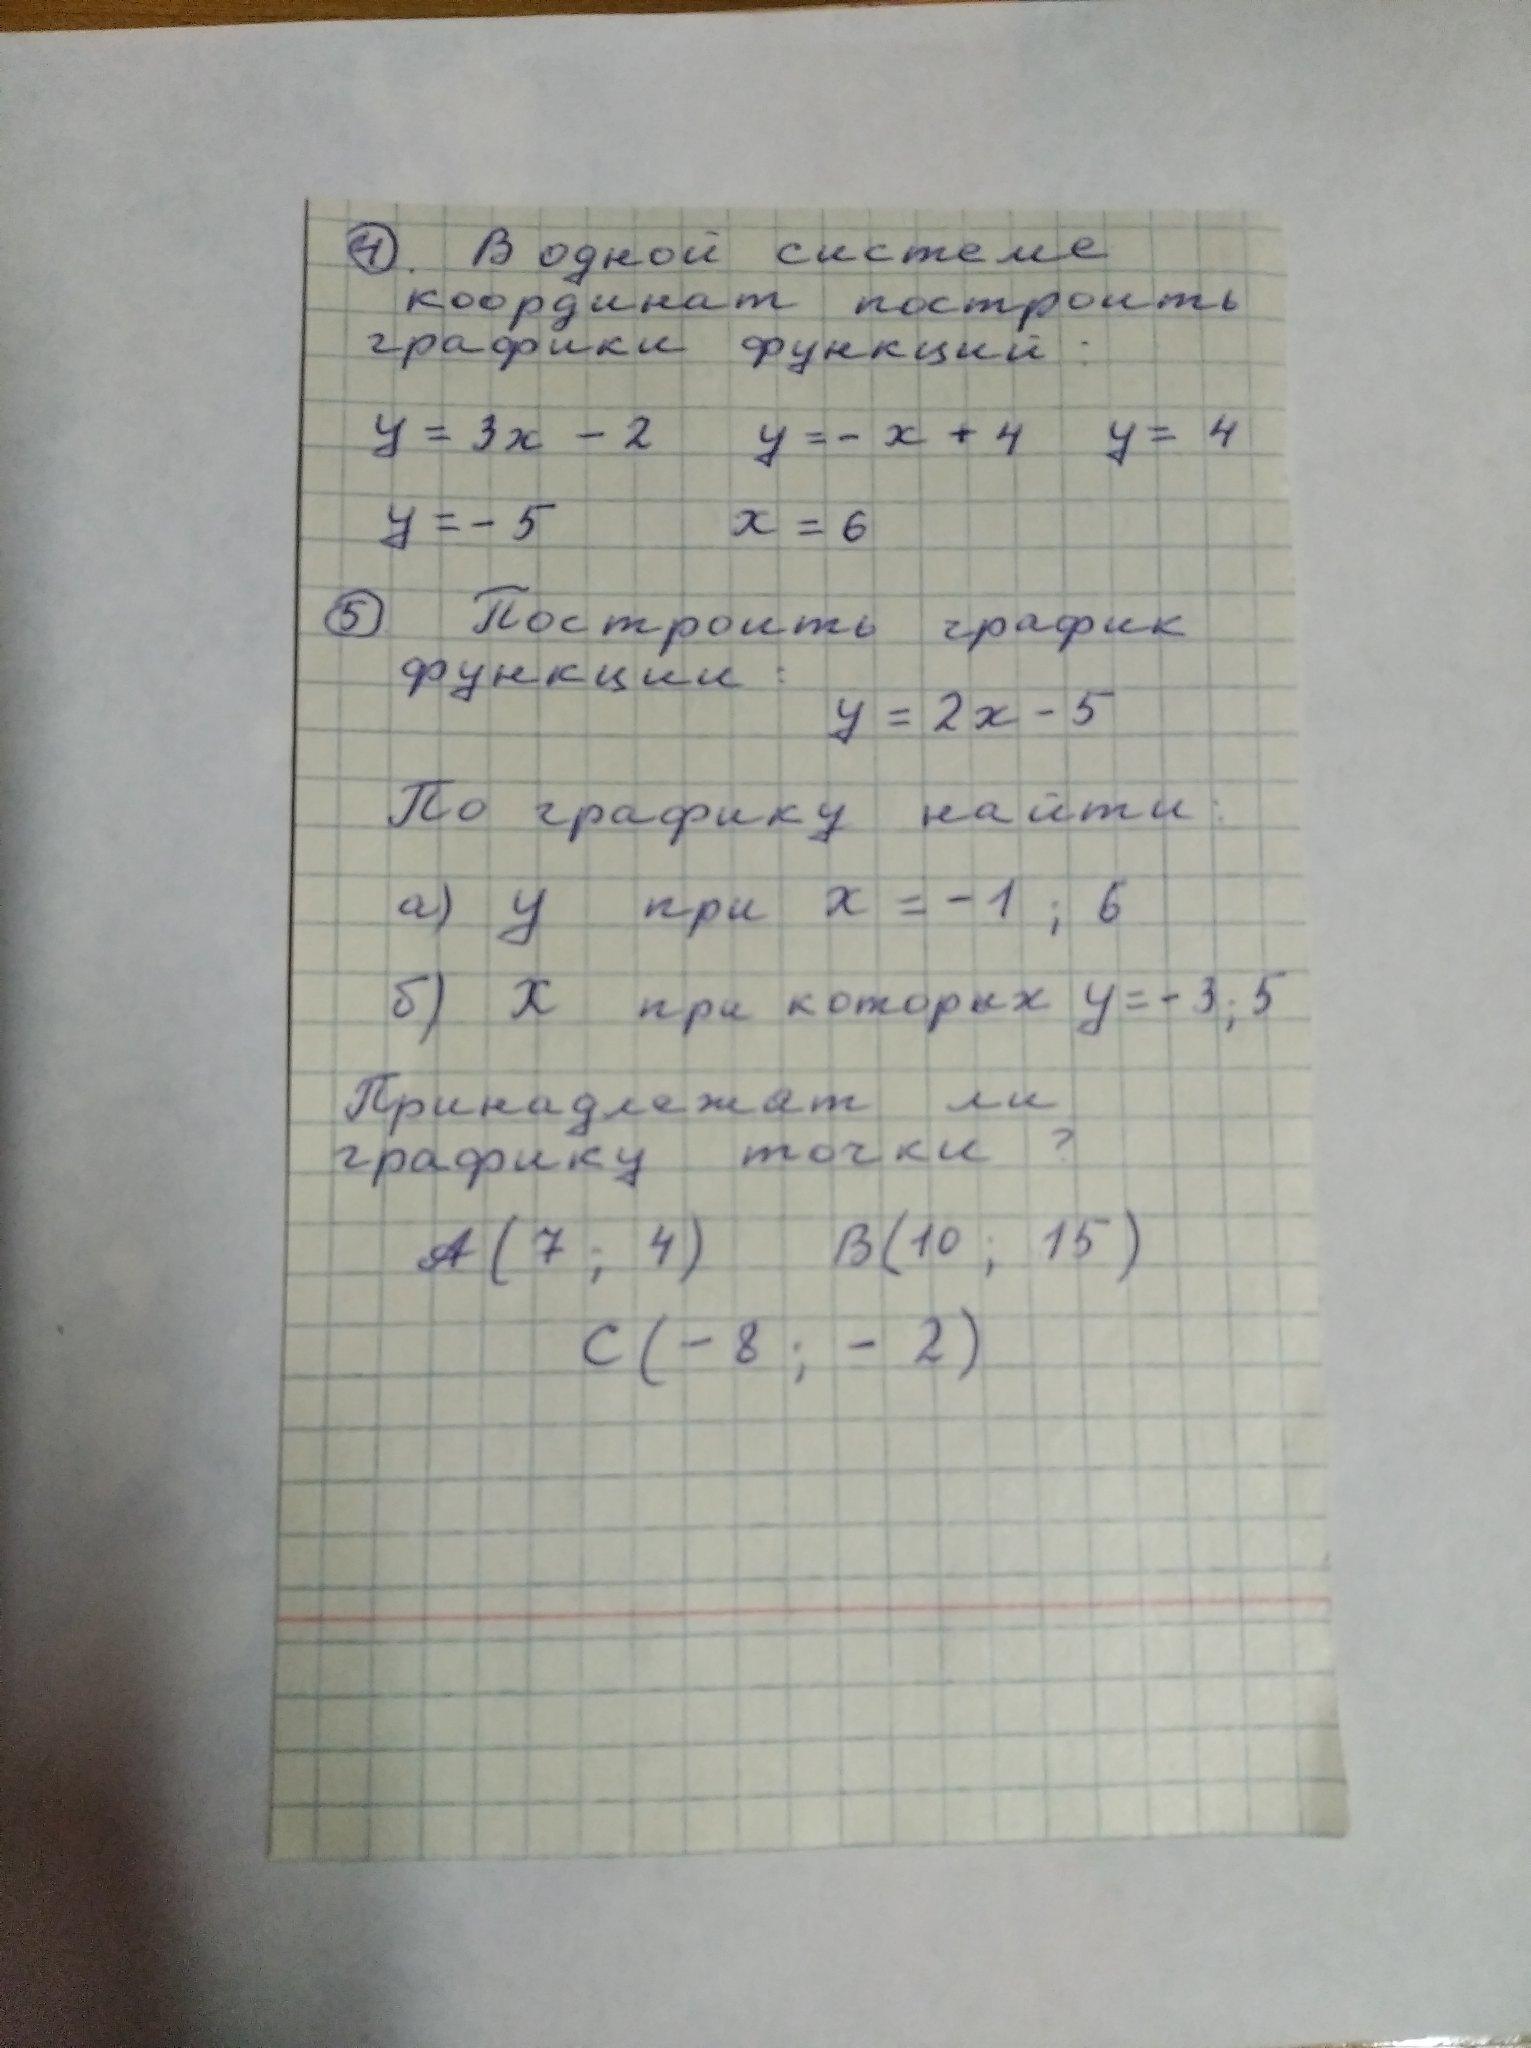 4. В одной системе
координат построить
графики функций:
y = 3x - 2 y = - x + 4 y = 4
y = - 5 x = 6
5 Построить график
функции:
y = 2x - 5
По графику найти:
а) y при x = - 1 ; 6
б) X при которых y = - 3 ; 5
Принадлежат ли
графику точки ?
A ( 7 ; 4 ) B ( 10 ; 15 )
C ( - 8 ; - 2 )